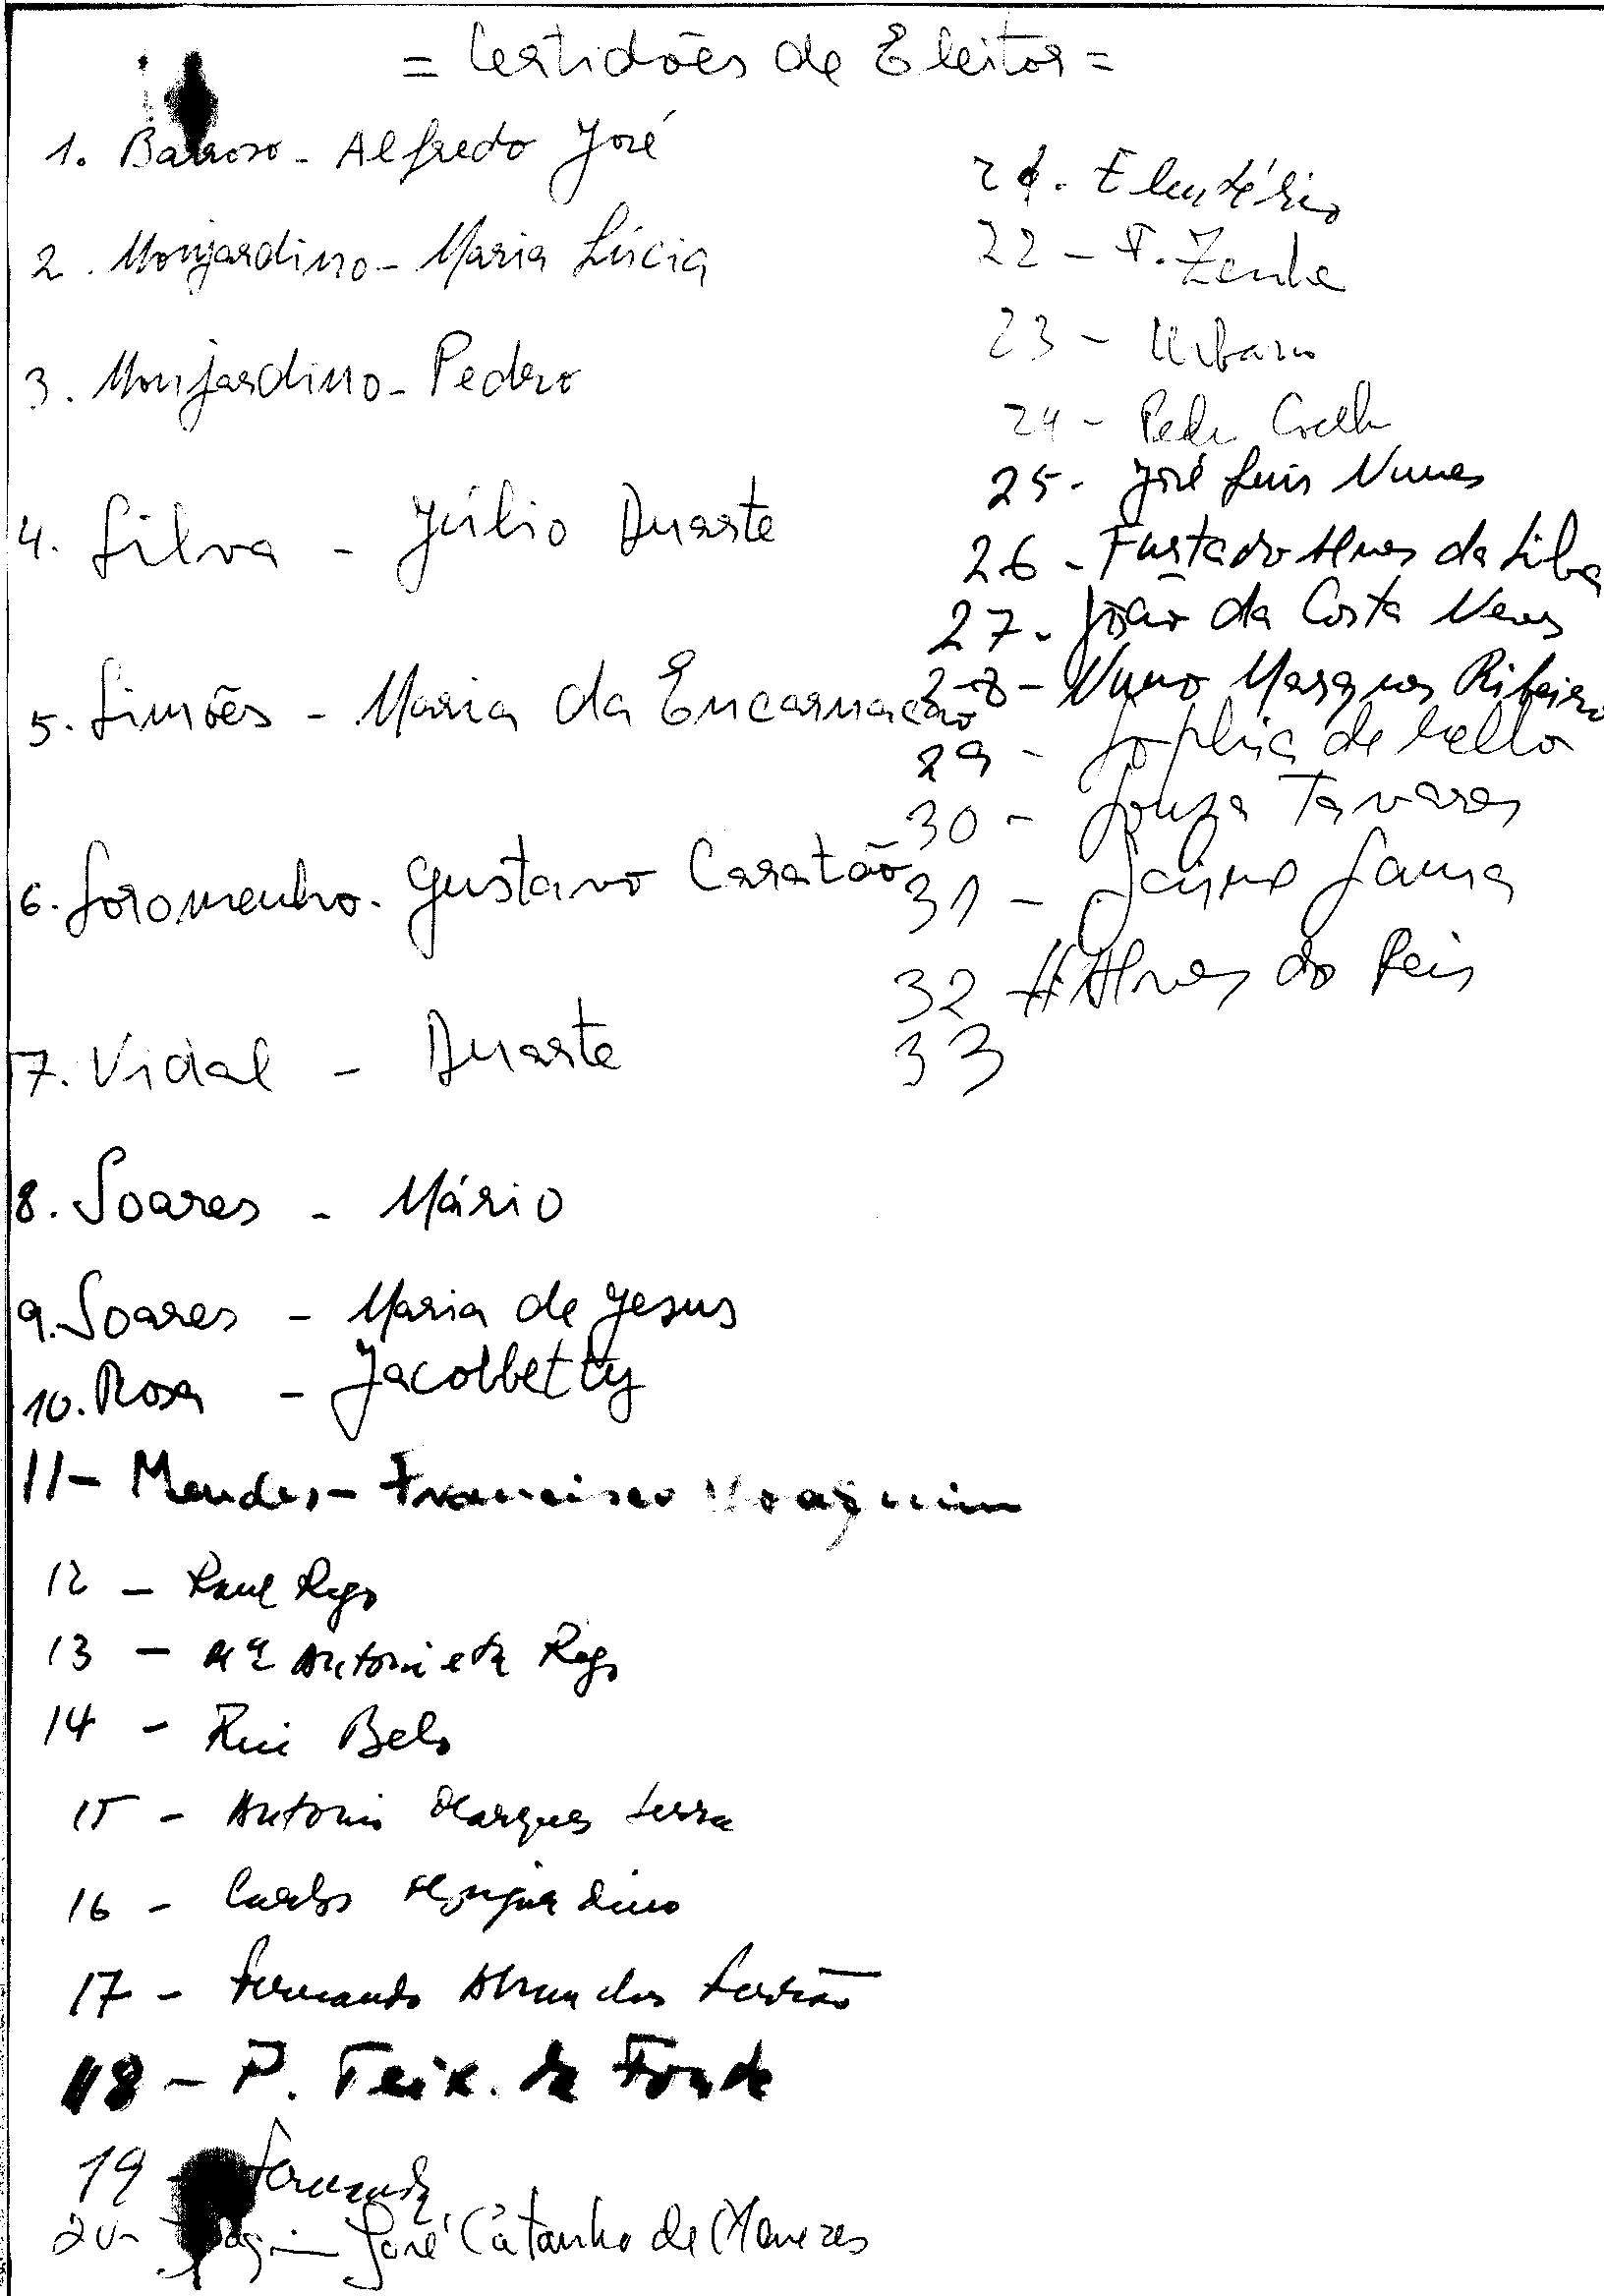 = Certidões de Eleitor =
1. Barroso - Alfredo José
2. Monjardino - Maria Lúcia
3. Monjardino - Pedro
4. Silva - Júlio Duarte
5. Simões - Maria da Encarnação
6. Soromenho - Gustavo Caratão
7. Vidal - Duarte
8. Soares - Mário
9. Soares - Maria de Jesus
10. Rosa - Jacobbetty
11 - Mendes - Francisco Joaquim
12 - Raul Rego
13 - Mª Antonieta Rego
14 - Rui Belo
15 - Antonio Marques Serra
16 - Carlos Monjardino
17 - Fernando Abranches Ferrão
18 - P. Teix. da
19 - Fernanda
20 - José Catanho de Menezes
21. Eleutério
22 - F. Zenha
23 - Urbano
24 - Pedro Coelho
25 - José Luis Nunes
26 - Furtado Alves da Silva
27 - João da Costa Neves
28 - Nuno Marques Ribeiro
29 - Sophia de Mello
30 - Souza Tavares
31 - Jaime Gama
32 Alves do Reis
33